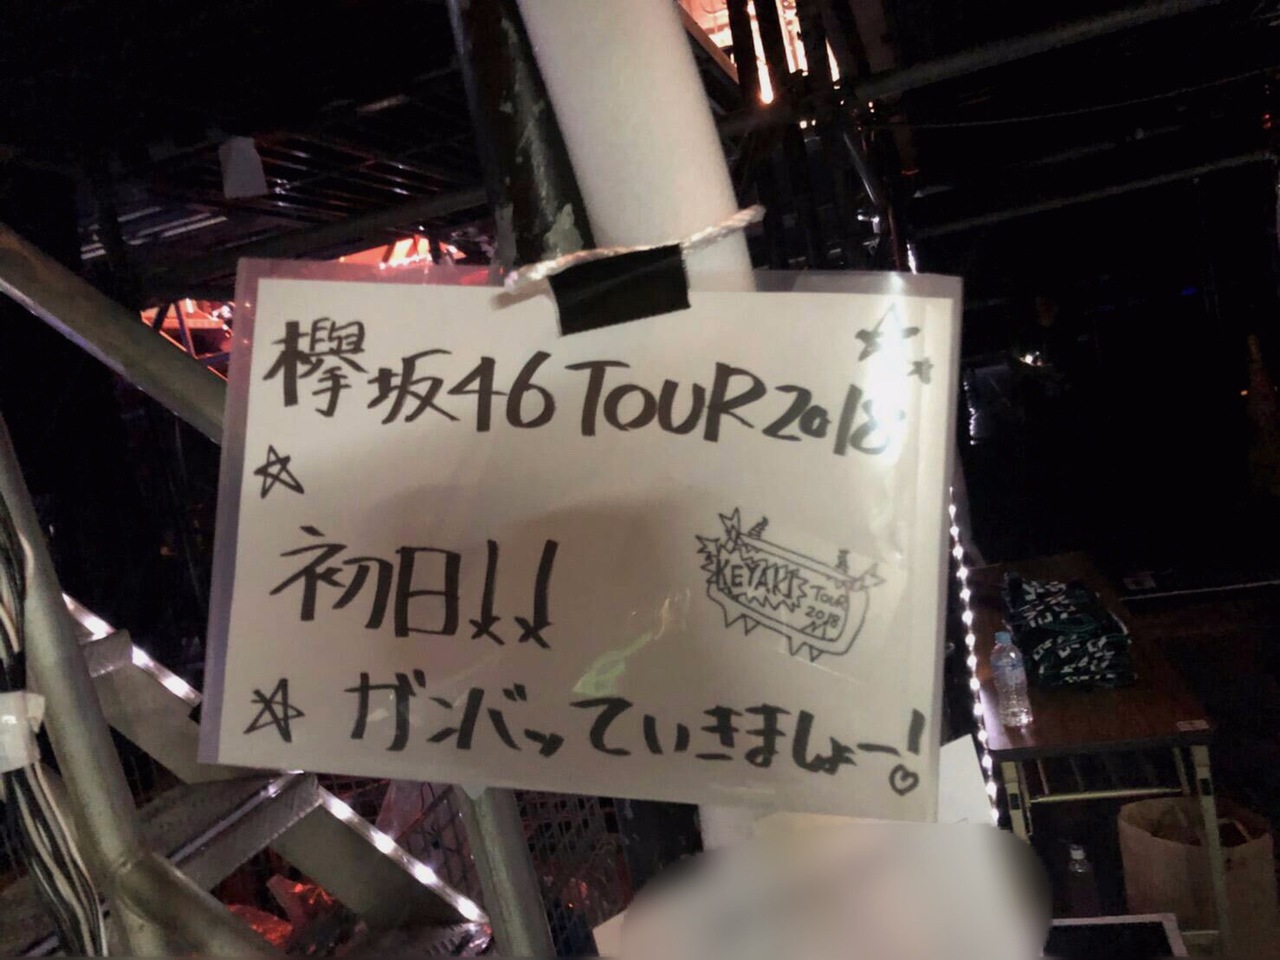 欅坂46 TOUR 2018
初日!!
KEYAKI
TOUR
2018
ガンバッていきましょー!